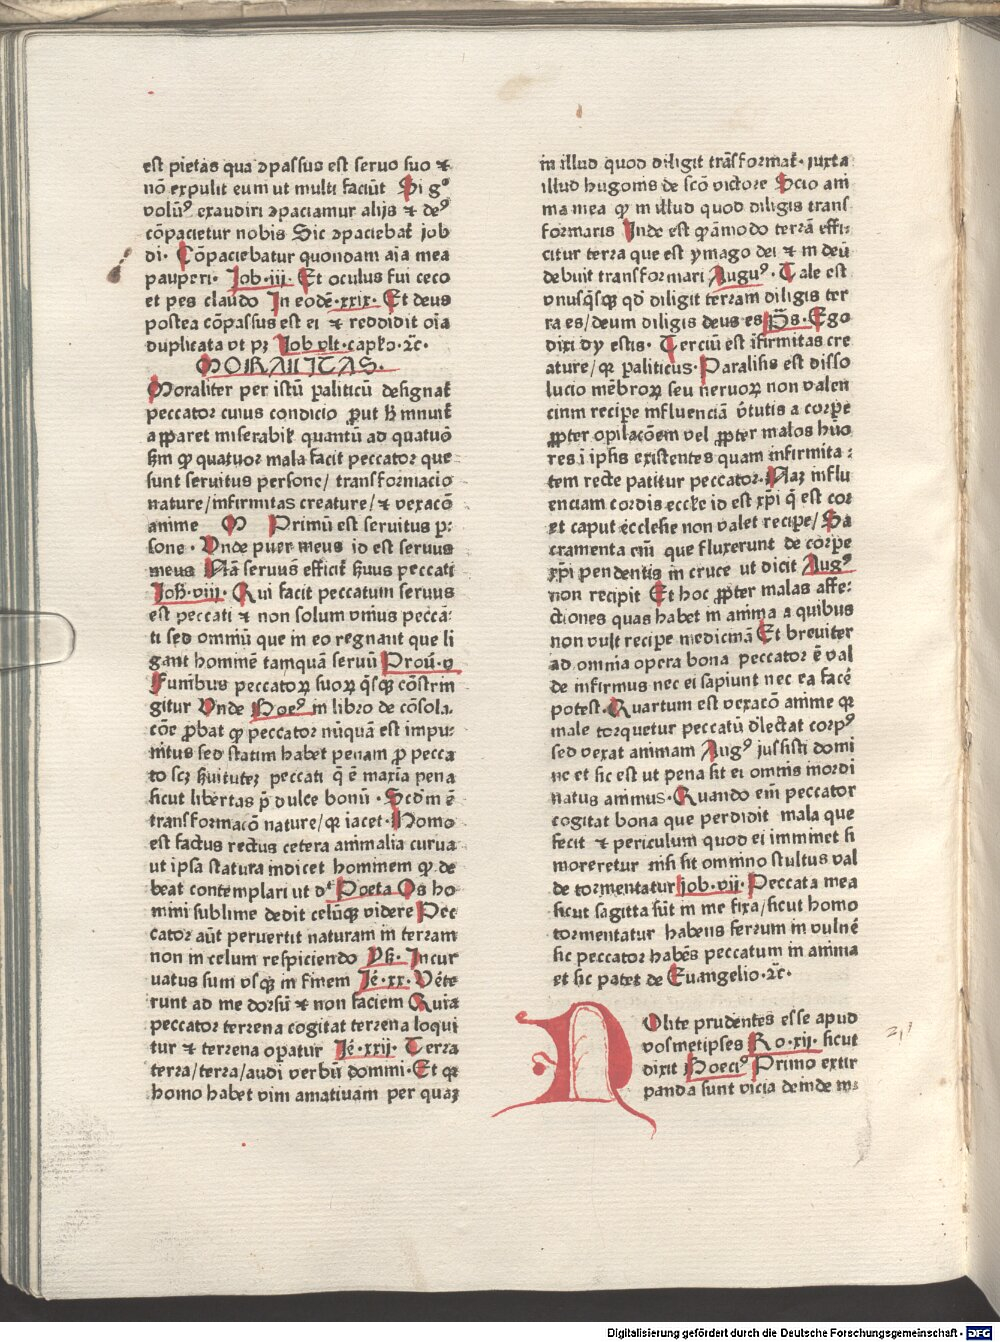 est pietas qua ↄpassus est seruo suo ⁊
nō expulit eum ut multi faciūt Si gͦ
volūꝰ exaudiri ↄpaciamur alijs ⁊ deꝰ
cōpacietur nobis Sic ↄpaciebat̄ iob
di· Cōpaciebatur quondam aīa mea
pauperi· Job·iii· Et oculus fui ceco
et pes claudo In eodē·xxix· Et deus
postea cōpassus est ei ⁊ reddidit oīa
duplicata vt pꝫ Job vlt·cap̄lo·⁊c̄·
MORALITAS·
Moraliter per istū paliticū designat̄
peccator cuius condicio ꝓut h̄ innuit̄
apparet miserabil̄ quantū ad quatuō
s̄m ꝙ quatuor mala facit peccator que
sunt seruitus persone/ transformacio
nature/infirmitas creature/⁊ vexacō
anime M Primū est seruitus p̄:
sone· Vnde puer meus id est seruus
meus Nā seruus efficit̄ s̄uus peccati
Joh̄·viii· Qui facit peccatum seruus
est peccati ⁊ non solum vnius pecca:
ti sed omniū que in eo regnant que li
gant hominē tamquā seruū Prou̅·v
Funibus peccatoꝝ suoꝝ q̄sqꝫ cōstrin
gitur Vnde Boeꝰ in libro de cōsola:
cōe ꝓbat ꝙ peccator nūquā est impu:
nitus sed statim habet penam ꝓ pecca
to scꝫ s̄uituteꝫ peccati q̄ ē maxīa pena
sicut libertas p̄dulce bonū · Scd̄m ē
transformacō nature/qꝛ iacet·Homo
est factus rectus cetera animalia curua
ut ipsa statura indicet hominem ꝙ de
beat contemplari ut dͭ Poeta Os ho
mini sublime dedit celūqꝫ videre Pec
cator aūt peruertit naturam in terram
non in celum respiciendo Ps̄· Incur
uatus sum vsqꝫ in finem Je̅·xx· V̄te
runt ad me dorsū ⁊ non faciem Quia
peccator terrena cogitat terrena loqui
tur ⁊ terrena opatur Je̅·xxij· Terra
terra/terra/audi verbū domini·Et qꝛ
homo habet vim amatiuam per quaꝫ
in illud quod diligit trāsformat̄· iuxta
illud hugonis de scō victore Scio ani
ma mea ꝙ in illud quod diligis trans
formaris Inde est qͣmōdo terrā effi:
citur terra que est ymago dei ⁊ in deū
debuit transformari Auguꝰ· Tale est
vnusq̄sqꝫ qd̄ diligit terram diligis ter
ra es/deum diligis deus es Ps̄· Ego
dixi dy estis· Terciū est īfirmitas cre
ature/ qꝛ paliticus·Paralisis est disso
lucio mēbroꝝ seu neruoꝝ non valen
cium recip̄e influenciā v̄tutis a corp̄e
ꝓpter opilacōem vel ꝓpter malos hūo
res ī ip̄is existentes quam infirmita:
tem recte patitur peccator·Naꝫ influ
enciam cordis eccl̄e id est xp̄i q̄ est cor
et caput ecclesie non valet recip̄e/Sa
cramenta em̄ que fluxerunt de corp̄e
xp̄i pendentis in cruce ut dicit Augꝰ
non recipit Et hoc ꝓpter malas affe:
ctiones quas habet in anima a quibus
non vult recip̄e medicinā Et breuiter
ad omnia opera bona peccator ē val
de infirmus nec ei sapiunt nec ea facē
potest·Quartum est vexacō anime qꝛ
male torquetur peccatū d̄lectat corpꝰ
sed vexat animam Augꝰ iussisti domi
ne et sic est ut pena sit ei omnis inordi
natus animus·Quando em̄ peccator
cogitat bona que perdidit mala que
fecit ⁊ periculum quod ei imminet si
moreretur nisi sit omnino stultus val
de tormentatur job·vij· Peccata mea
sicut sagitta sūt in me fixa/sicut homo
tormentatur habens ferrum in vulnē
sic peccator habēs peccatum in anima
et sic patet de Euangelio·⁊c̄·
NOlite prudentes esse apud
vosmetipses Ro·xij· sicut
dixit Boeciꝰ Primo extir
panda sunt vicia deinde in:
Digitalisierung gefördert durch die Deutsche Forschungsgemeinschaft - DFG